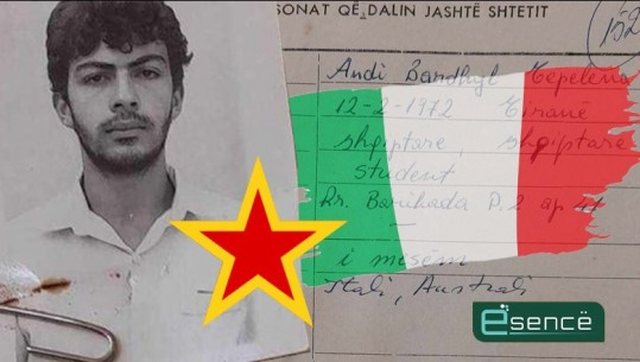 SONAT QË DALIN JASHTË SHTETIT
152
Andi Bardhyl Tepelena
12-2-1972 Tiranë
shqiptare, shqiptare
student
Rr. P.2 ap 41
—
i mesëm
Itali, Australi
esencë